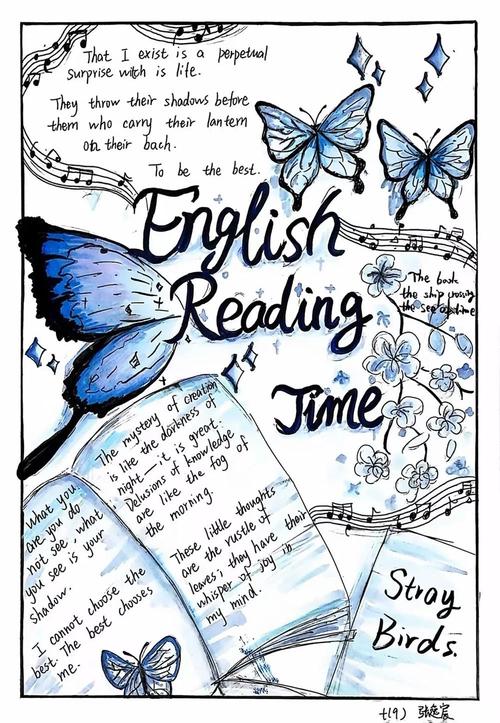 That I exist is a perpetual
surprise witch is life.
They throw their shadows before
them who carry their lantern
on their bach.
To be the best.
English
Reading
Time
The book
the ship crossing
the sea of time
The mystery of creation
is like the darkness of
night — it is great.
Delusions of knowledge
are like the fog of
the morning.
These little thoughts
are the rustle of
leaves; they have their
whisper of joy in
my mind.
What you
are you do
not see, what
you see is your
shadow.
I cannot choose the
best. The best chooses
me.
Stray
Birds.
七(9)